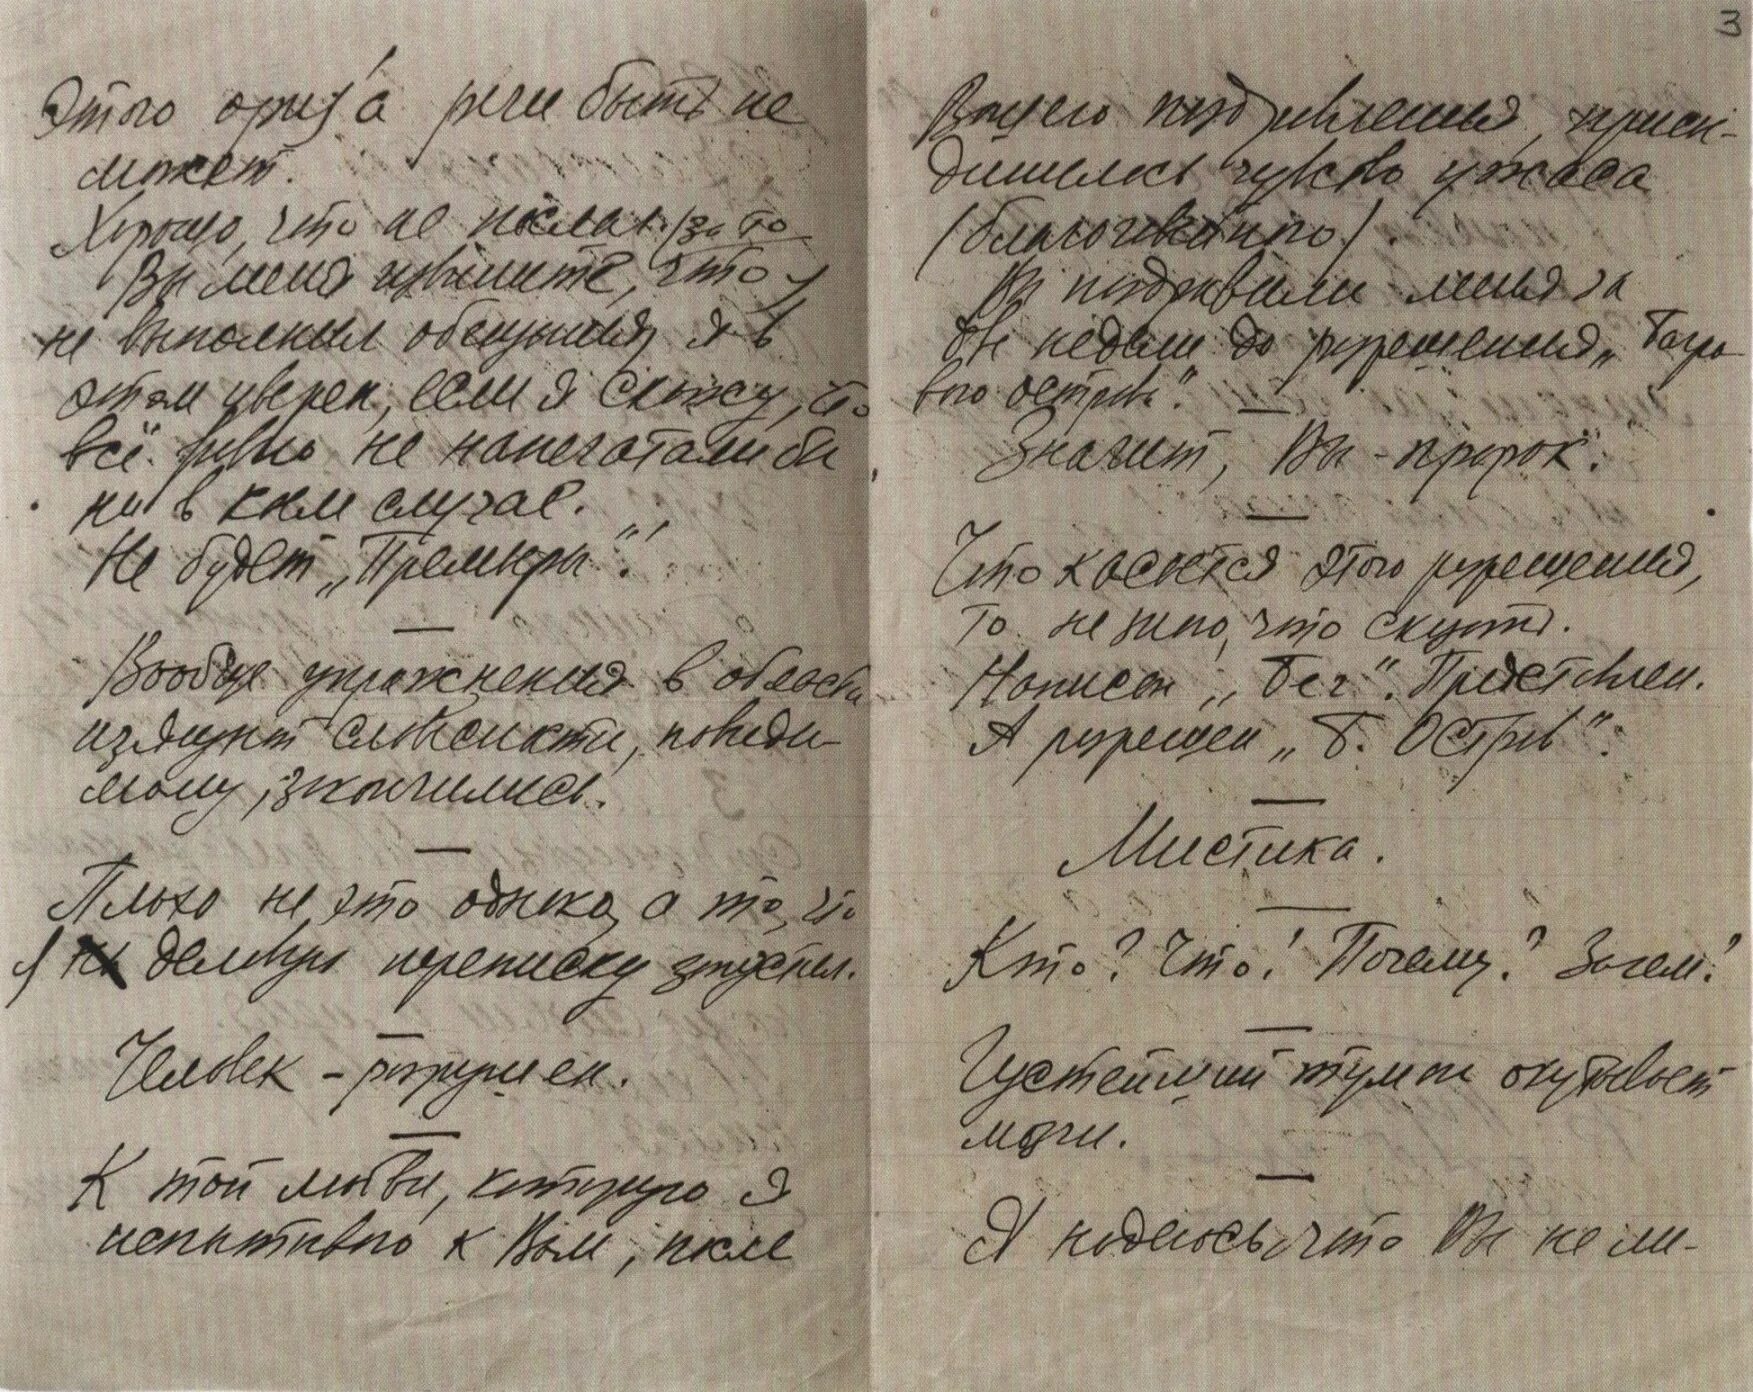 Этого оригинала речи быть не
может.
Хорошо, что не послал. (за то
Вы меня извините, что
не выполнил обещания, я в
этом уверен, если я скажу, что
всё равно не напечатали бы
ни в коем случае.
Не будет „Премьеры"!
Вообще упражнения в области
изящной словесности, повиди-
мому, закончились.
Плохо не это однако, а то, что
я деловую переписку запустил.
Человек - разрушен.
К той любви, которую я
испытываю к Вам, после
3
Вашего поздравления, присое-
динилось чувство ужаса
(благоговейного).
Вы поздравили меня за
две недели до разрешения „Багро
вого острова".
Значит, Вы - пророк.
Что касается этого разрешения,
то не знаю, что сказать.
Написан „Бег". Представлен.
А разрешен „Б. Остров".
Мистика.
Кто? Что? Почему? Зачем?
Густейший туман окутывает
мозги.
Я надеюсь, что Вы не ли-